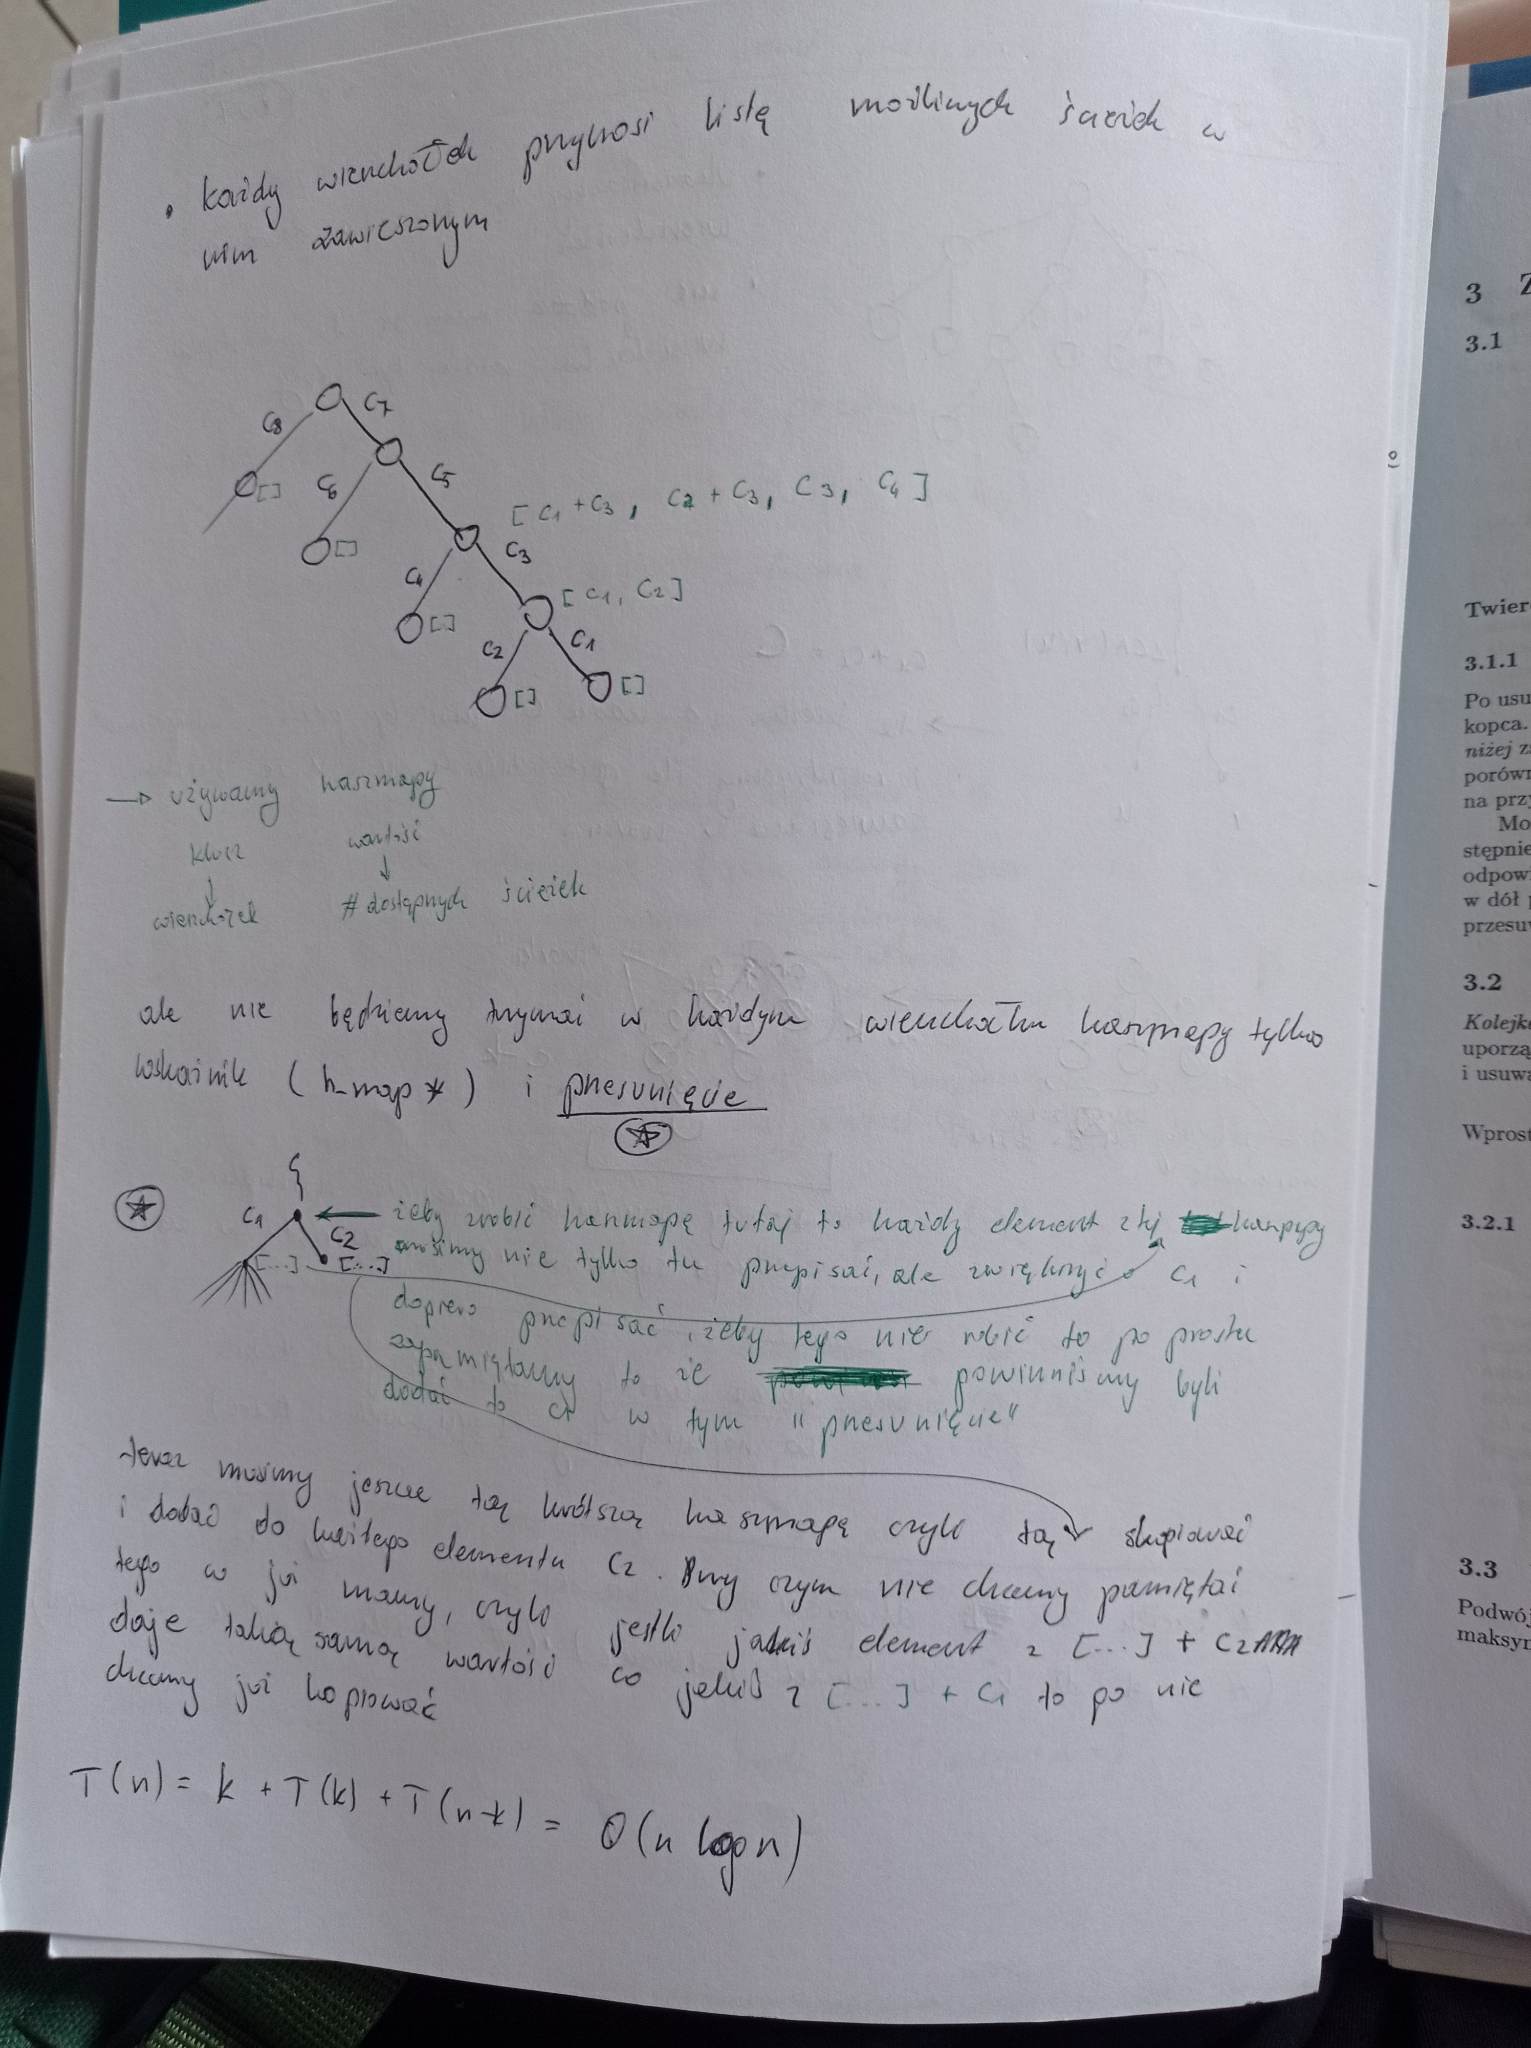 • każdy wierzchołek przynosi listę możliwych ścieżek w
nim zawieszonym
C8
C7
[]
C6
C5
[]
[C1+C3, C2+C3, C3, C4]
C4
C3
[]
[C1, C2]
C2
C1
[]
[]
→ używamy haszmapy
klucz wartość
↓ ↓
wierzchołek # dostępnych ścieżek
ale nie będziemy trzymać w każdym wierzchołku haszmapy tylko
wskaźnik (h_map *) i przesunięcie
C1
C2
[...]
[...]
żeby zrobić haszmapę tutaj to każdy element z tej haszmapy
musimy nie tylko tu przepisać, ale zwiększyć o C1 i
dopiero przepisać, żeby tego nie robić to po prostu
zapamiętamy to że powinniśmy byli
dodać to C1 w tym "przesunięcie"
teraz musimy jeszcze tą krótszą haszmapę czyli tą skopiować
i dodać do każdego elementu C2. Przy czym nie chcemy pamiętać
tego co już mamy, czyli jeśli jakiś element z [...] + C2
daje taką samą wartość co jakiś z [...] + C1 to po nie
chcemy już kopiować
T(n) = k + T(k) + T(n-k) = O(n log n)
3
3.1
Twier
3.1.1
Po usu
kopca.
niżej z
porówn
na przy
Mo
stępnie
odpow
w dół p
przesu
3.2
Kolejk
uporzą
i usuwa
Wprost
3.2.1
3.3
Podwój
maksym